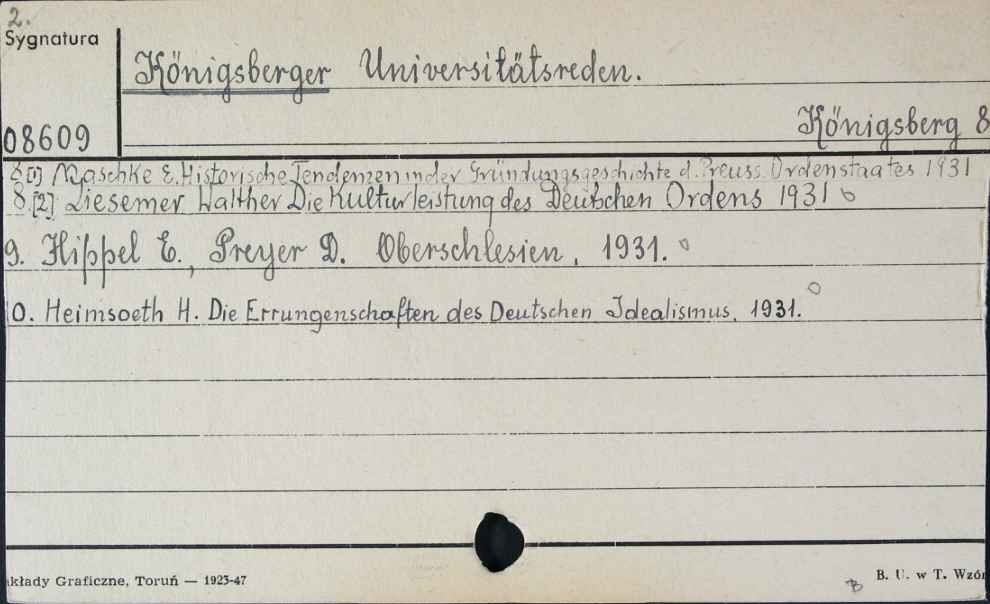 2.
Sygnatura
Königsberger Universitätsreden.
Königsberg 8
08609
8 [1] Maschke E. Historische Tendenzen in der Gründungsgeschichte d. Preuss. Ordenstaates 1931
8. [2] Ziesemer Walther Die Kulturleistung des Deutschen Ordens 1931
9. Hippel E., Preyer D. Oberschlesien, 1931.
10. Heimsoeth H. Die Errungenschaften des Deutschen Idealismus, 1931.
kłady Graficzne, Toruń — 1923-47
B. U. w T. Wzór
B